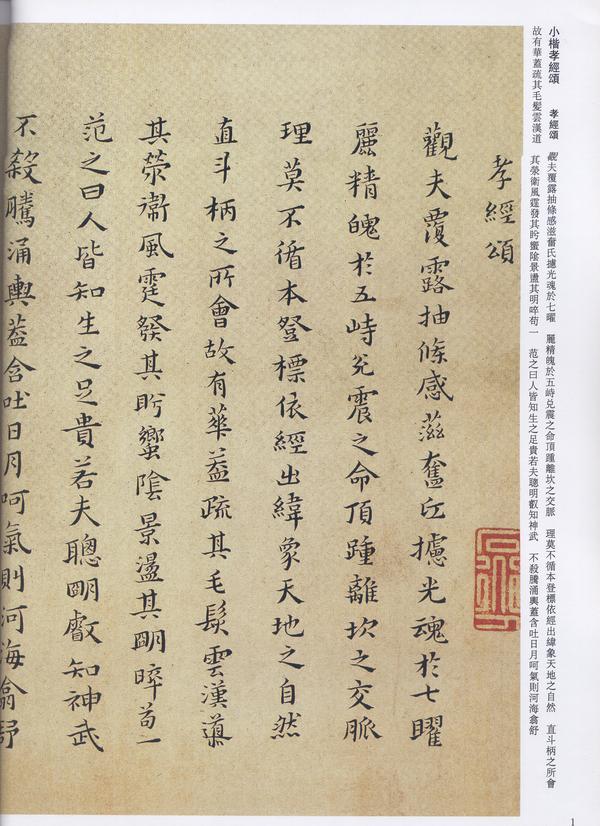 小楷孝經頌　孝經頌　觀夫覆露抽條感滋奮氐攄光魂於七曜　麗精魄於五峙兑震之命頂踵離坎之交脈　理莫不循本登標依經出緯象天地之自然　直斗柄之所會
故有華蓋疏其毛髮雲漢道　其滎衛風霆發其肸蠁陰景盪其明啐苟一　范之曰人皆知生之足貴若夫聰明叡知神武　不殺騰涌輿蓋含吐日月呵氣則河海翕舒
孝經頌
觀夫覆露抽條感滋奮氐攄光魂於七曜
麗精魄於五峙兊震之命頂踵離坎之交脈
理莫不循本登標依經出緯象天地之自然
直斗柄之所會故有華蓋疏其毛髮雲漢導
其滎衛風霆發其肸蠁陰景盪其明晬苟一
范之曰人皆知生之足貴若夫聰明叡知神武
不殺騰涌輿蓋含吐日月呵氣則河海翕舒
1